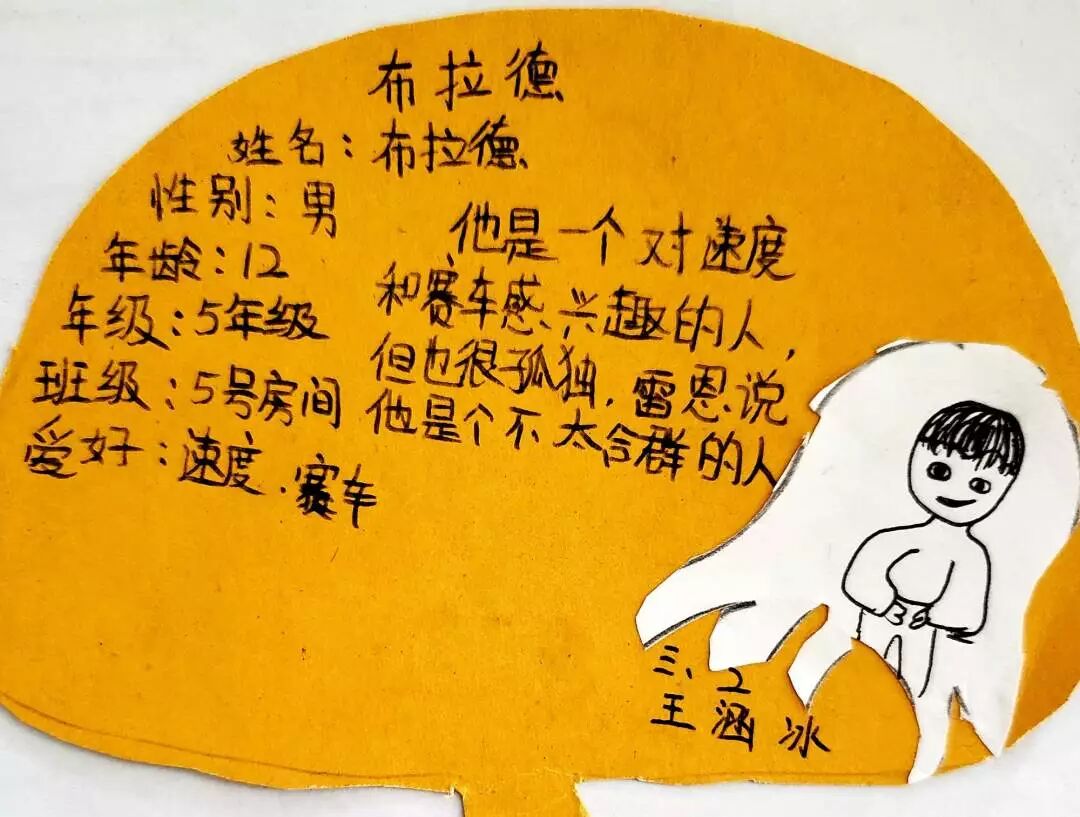 布拉德
姓名：布拉德
性别：男
年龄：12
年级：5年级
班级：5号房间
爱好：速度、赛车
他是一个对速度
和赛车感兴趣的人，
但也很孤独，雷恩说
他是个不太合群的人
三、2
王涵冰